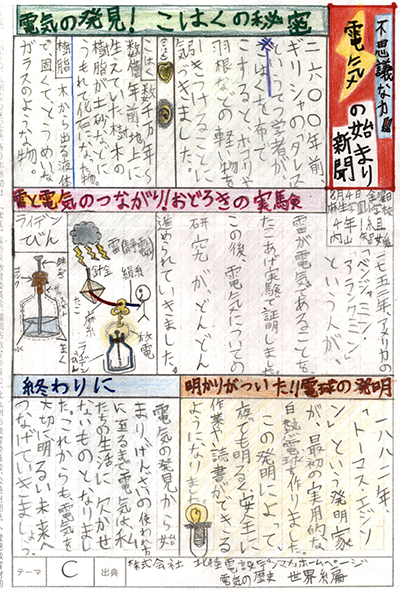 不思議な力!!
電気の始まり新聞
電気の発見！こはくの秘密
二六〇〇年前、
ギリシャのタレス
という学者が
こはくを布で
こすると、ホコリや
羽根などの軽い物を
引きつけることに
気づきました。
こはく 数千万年〜
数億年前、地上に
生えた樹木の
樹脂が土砂などに
うもれ化石になった物。
樹脂 木から出る液体
で、固くて、とうめいな
ガラスのような物。
雷と電気のつながり！おどろきの実験
一七五二年、アメリカの
「ベンジャミン・
フランクリン」
という人が、
雷が電気であることを
たこあげ実験で証明しました。
この後、電気についての
研究がどんどん
進められていきました。
雷(静電気)
針金
絹糸
たこ
麻糸
放電
ライデンびん
ライデンびん
明かりがついた!!電球の発明
「トーマス・エジソ
ン」という発明家
が、最初の実用的な
白熱電球を作りました。
この発明によって、
夜でも明るく安全に
作業や読書ができる
ようになりました。
終わりに
電気の発見から始
まり、げんざいの使われ方
に至るまで電気は私
たちの生活に欠かせ
ないものとなりまし
た。これからも電気を
大切に明るい未来へ
つなげていきましょう。
テーマ
C
出典
電気の歴史 世界編